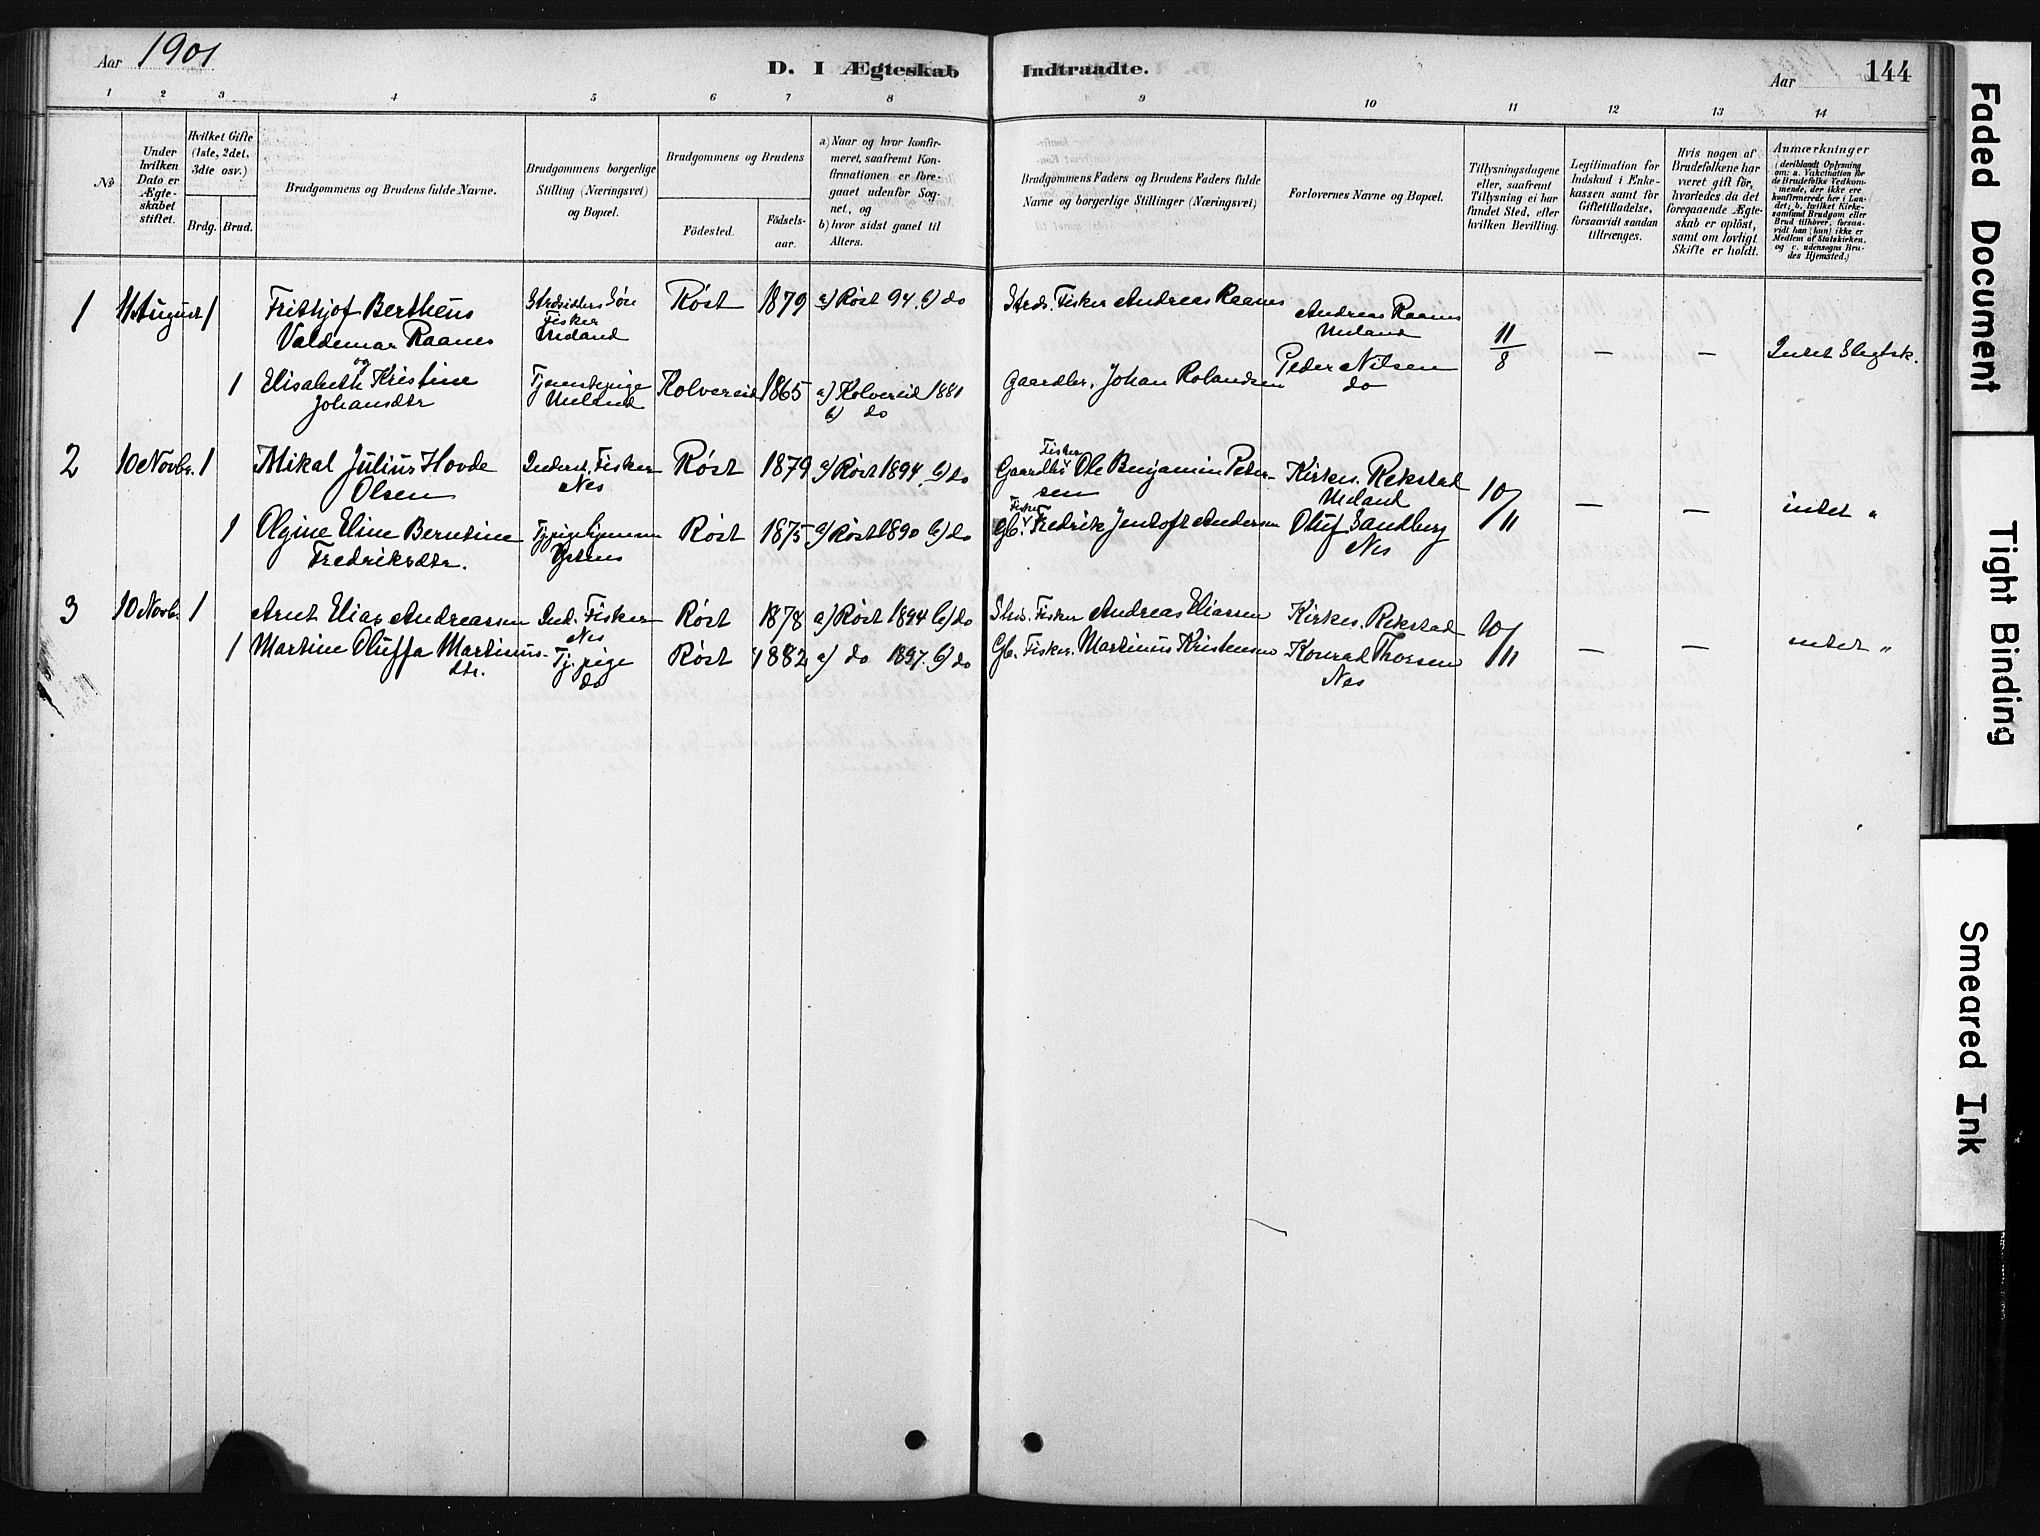 Aar 1901
D. I Ægteskab Indtraadte.
Aar
144
1 2 3 4 5 6 7 8 9 10 11 12 13 14
No
Under hvilken Dato er Ægteskabet stiftet.
Hvilket Gifte (1ste, 2det, 3die osv.)
Brdg. Brud.
Brudgommens og Brudens fulde Navne.
Brudgommens borgerlige Stilling (Næringsvei) og Bopæl.
Brudgommens og Brudens
Födested.
Födsels-aar.
a) Naar og hvor konfirmeret, saafremt Konfirmationen er foregaaet udenfor Sognet, og
b) hvor sidst gaaet til Alters.
Brudgommens Faders og Brudens Faders fulde Navne og borgerlige Stillinger (Næringsvei)
Forlovernes Navne og Bopæl.
Tillysningsdagene eller, saafremt Tillysning ei har fundet Sted, efter hvilken Bevilling.
Legitimation for Indskud i Enkekassen samt for Giftetilladelse, forsaavidt saadan tiltrænges.
Hvis nogen af Brudefolkene har været gift för, hvorledes da det foregaaende Ægteskab er oplöst, samt om lovligt Skifte er holdt.
Anmærkninger
(deriblandt Oplysning om: a. Vakcination for de Brudefolks Vedkommende, der ikke ere konfirmerede her i Landet; b. hvilket Kirkesamfund Brudgom eller Brud tilhörer, forsaavidt han (hun) ikke er Medlem af Statskirken, og c. udensogns Brudes Hjemsted.)
1 11 August 1 Frithjof Bertheus Strdsidders Søn Røst 1879 a) Røst 94. b) do Strds. Fisker Andreas Raanes Andreas Raanes
Valdemar Raanes Fisker Ueland Ueland 11/8 — — Intet Slegtsk.
og
1 Elisabeth Kristine Tjenestepige Kolvereid 1865 a) Kolvereid 1881 Gaardbr. Johan Rolandsen Peder Nilsen
Johansdtr Ueland b) do do
2 10 Novbr. 1 Mikal Julius Hovde Inderst, Fisker Røst 1879 a) Røst 1894. b) do Fisker Gaardbr Ole Benjamin Peter- Kirkes. Rekstad
Olsen Nes sen Ueland 10/11 — — intet "
1 Olgine Eline Berntine Røst 1875 a) Røst 1890 b) do Fisker Gb. Fredrik Jentoft Andersen Oluf Sandberg
Fredriksdtr. Nes
3 10 Novb. 1 Arnt Elias Andreassen Ind. Fisker Røst 1878 a) Røst 1894 b) do Strds. Fisker Andreas Eliassen Kirkes. Rekstad 10/11
Nes
1 Martine Oluffa Martinus- Tj. pige Røst 1882 a) do 1897. b) do Gb. Fisker. Martinus Kristensen Konrad Thorsen — — intet "
dtr. do Nes
Faded Document
Tight Binding
Smeared Ink